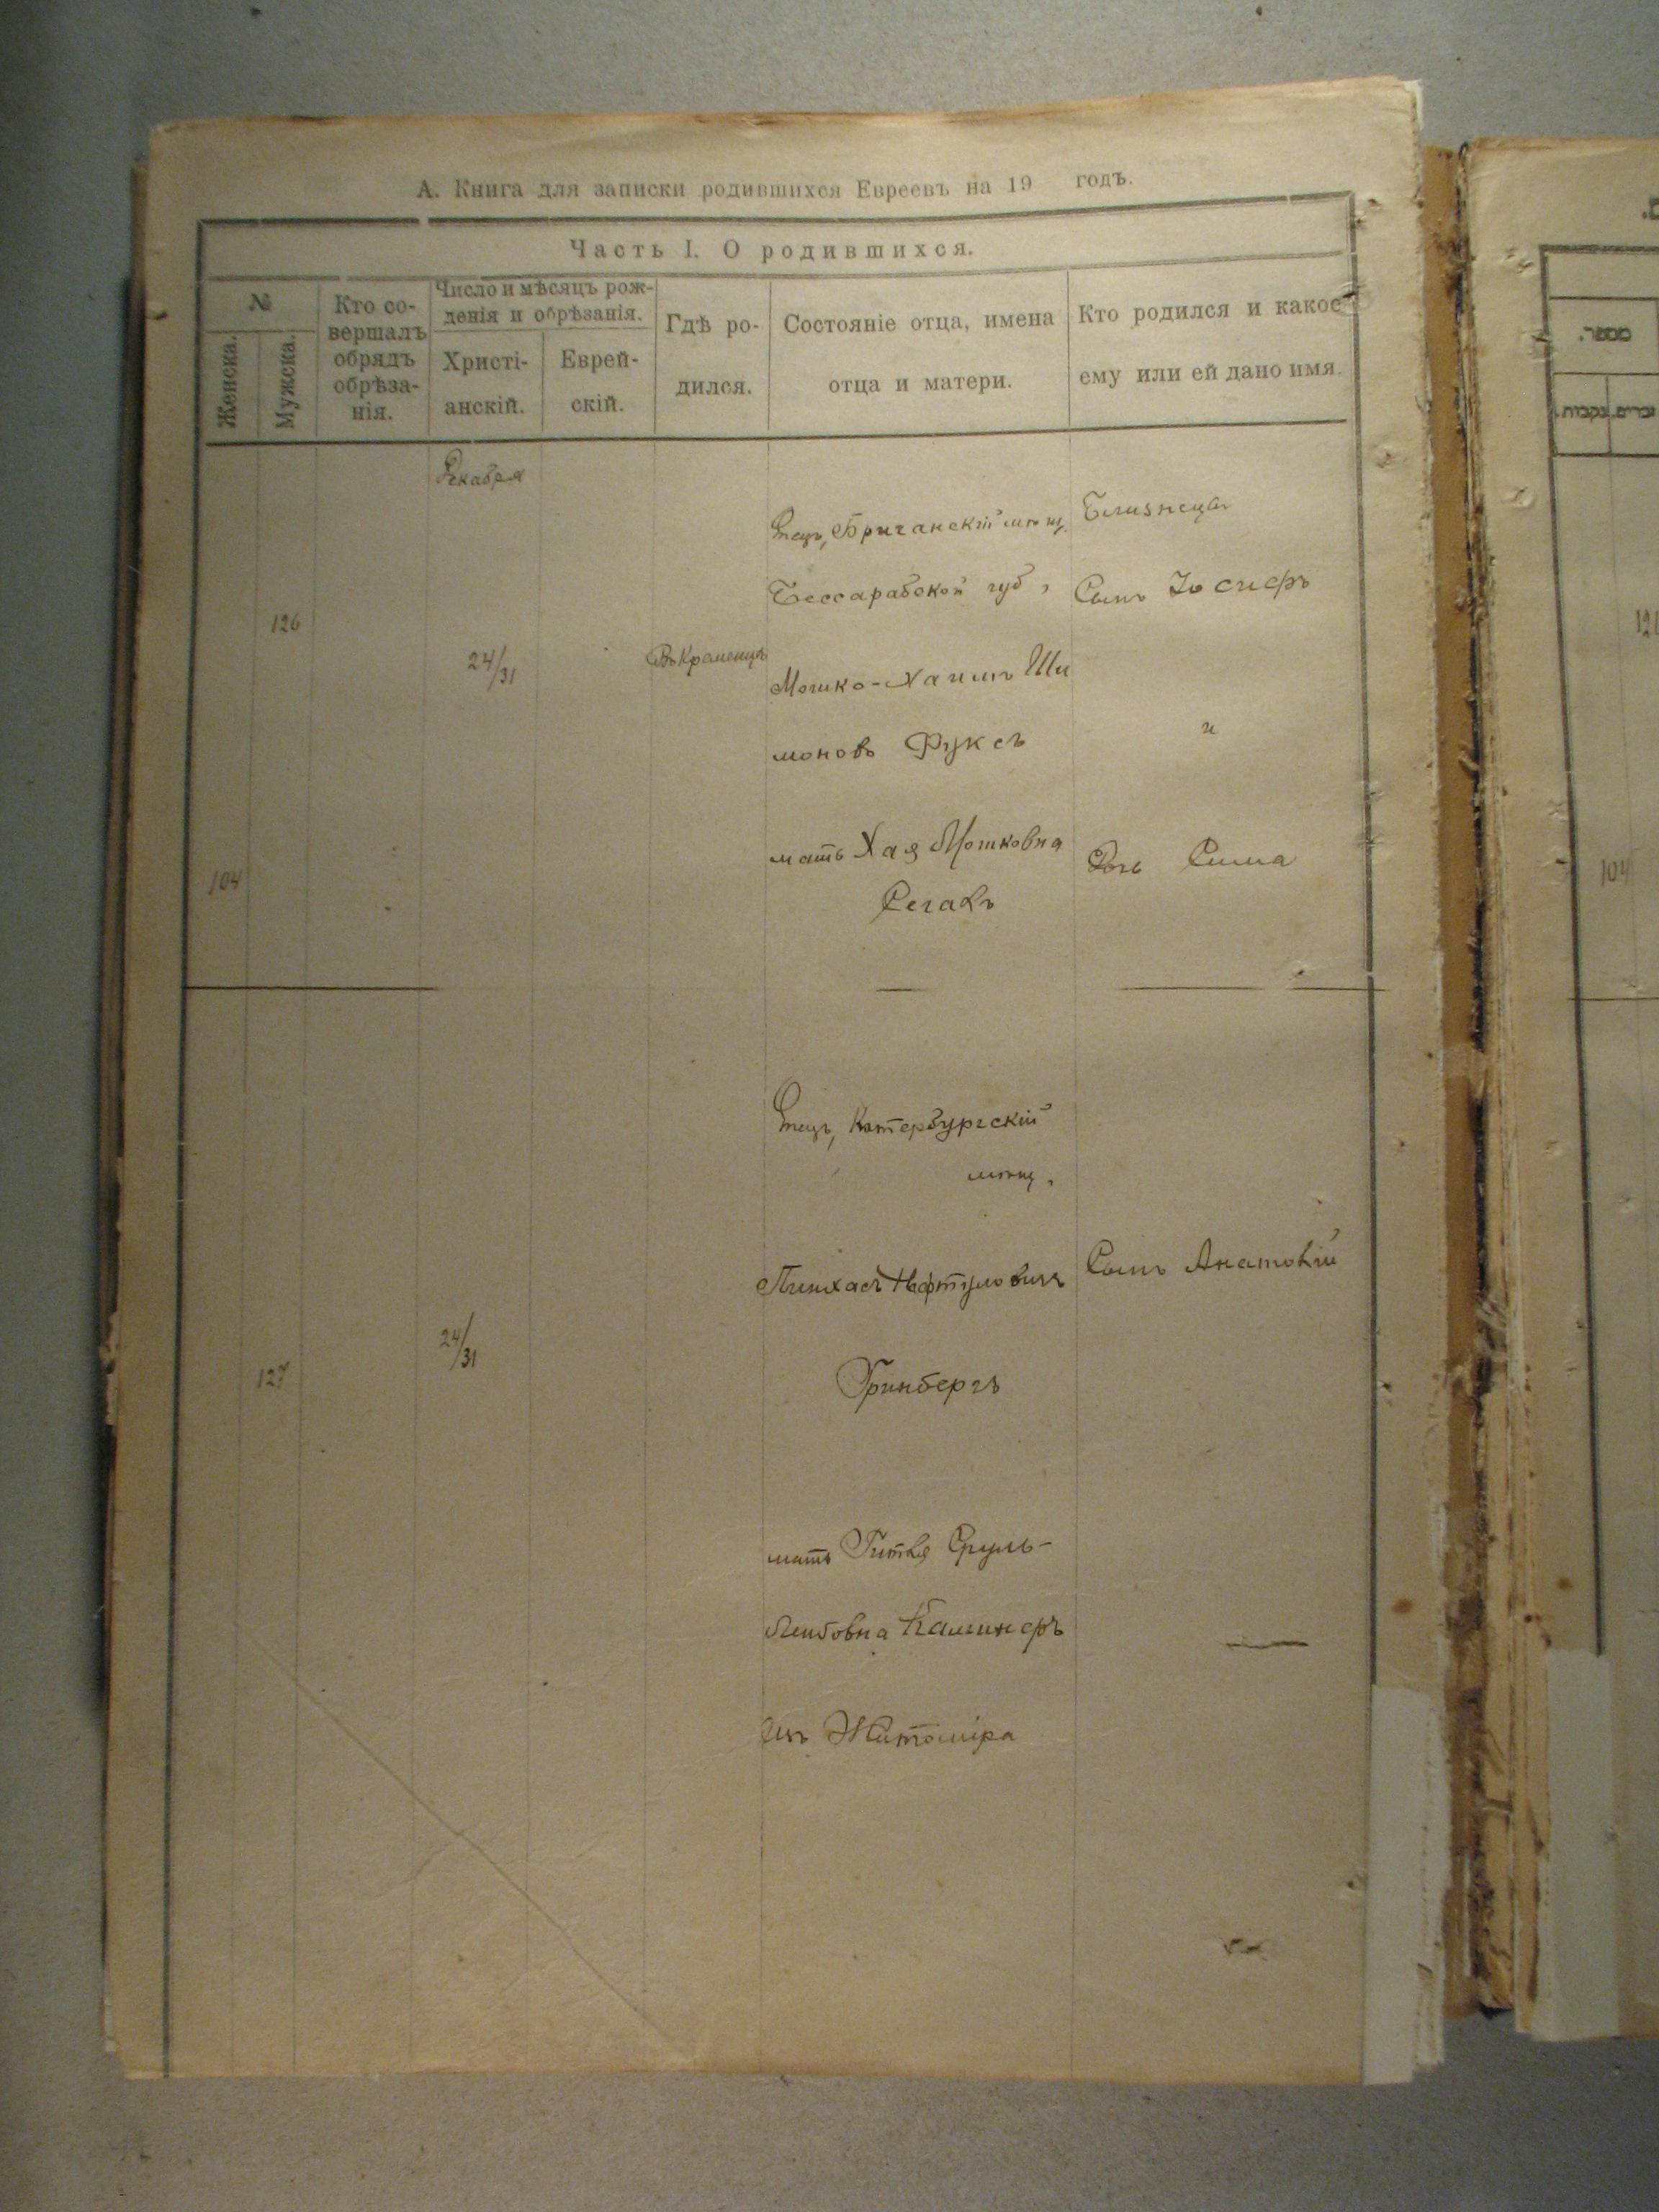 А. Книга для записки родившихся Евреевъ на 19 годъ.
Часть I. О родившихся.
№
Женска.
Мужска.
Кто со-
вершалъ
обрядъ
обрѣза-
нія.
Число и мѣсяцъ рож-
денія и обрѣзанія.
Христі-
анскій.
Еврей-
скій.
Гдѣ ро-
дился.
Состояніе отца, имена
отца и матери.
Кто родился и какое
ему или ей дано имя.
Декабря
126
104
24/31
Въ Кременцѣ
Отецъ, Бричанскій мѣщ.
Бессарабской губ,
Мошко-Хаимъ Ши
моновъ Фуксъ
мать Хая Мошковна
Сегалъ
Близнецы
Сынъ Іосифъ
и
Дочь Сима
127
24/31
Отецъ, Катербургскій
мѣщ,
Пинхасъ Нафтуловичъ
Гринбергъ
мать Гитля Сруль-
Лейбовна Каминеръ
изъ Житоміра
Сынъ Анатолій
מספר.
זכרים.
נקבות.
126
104